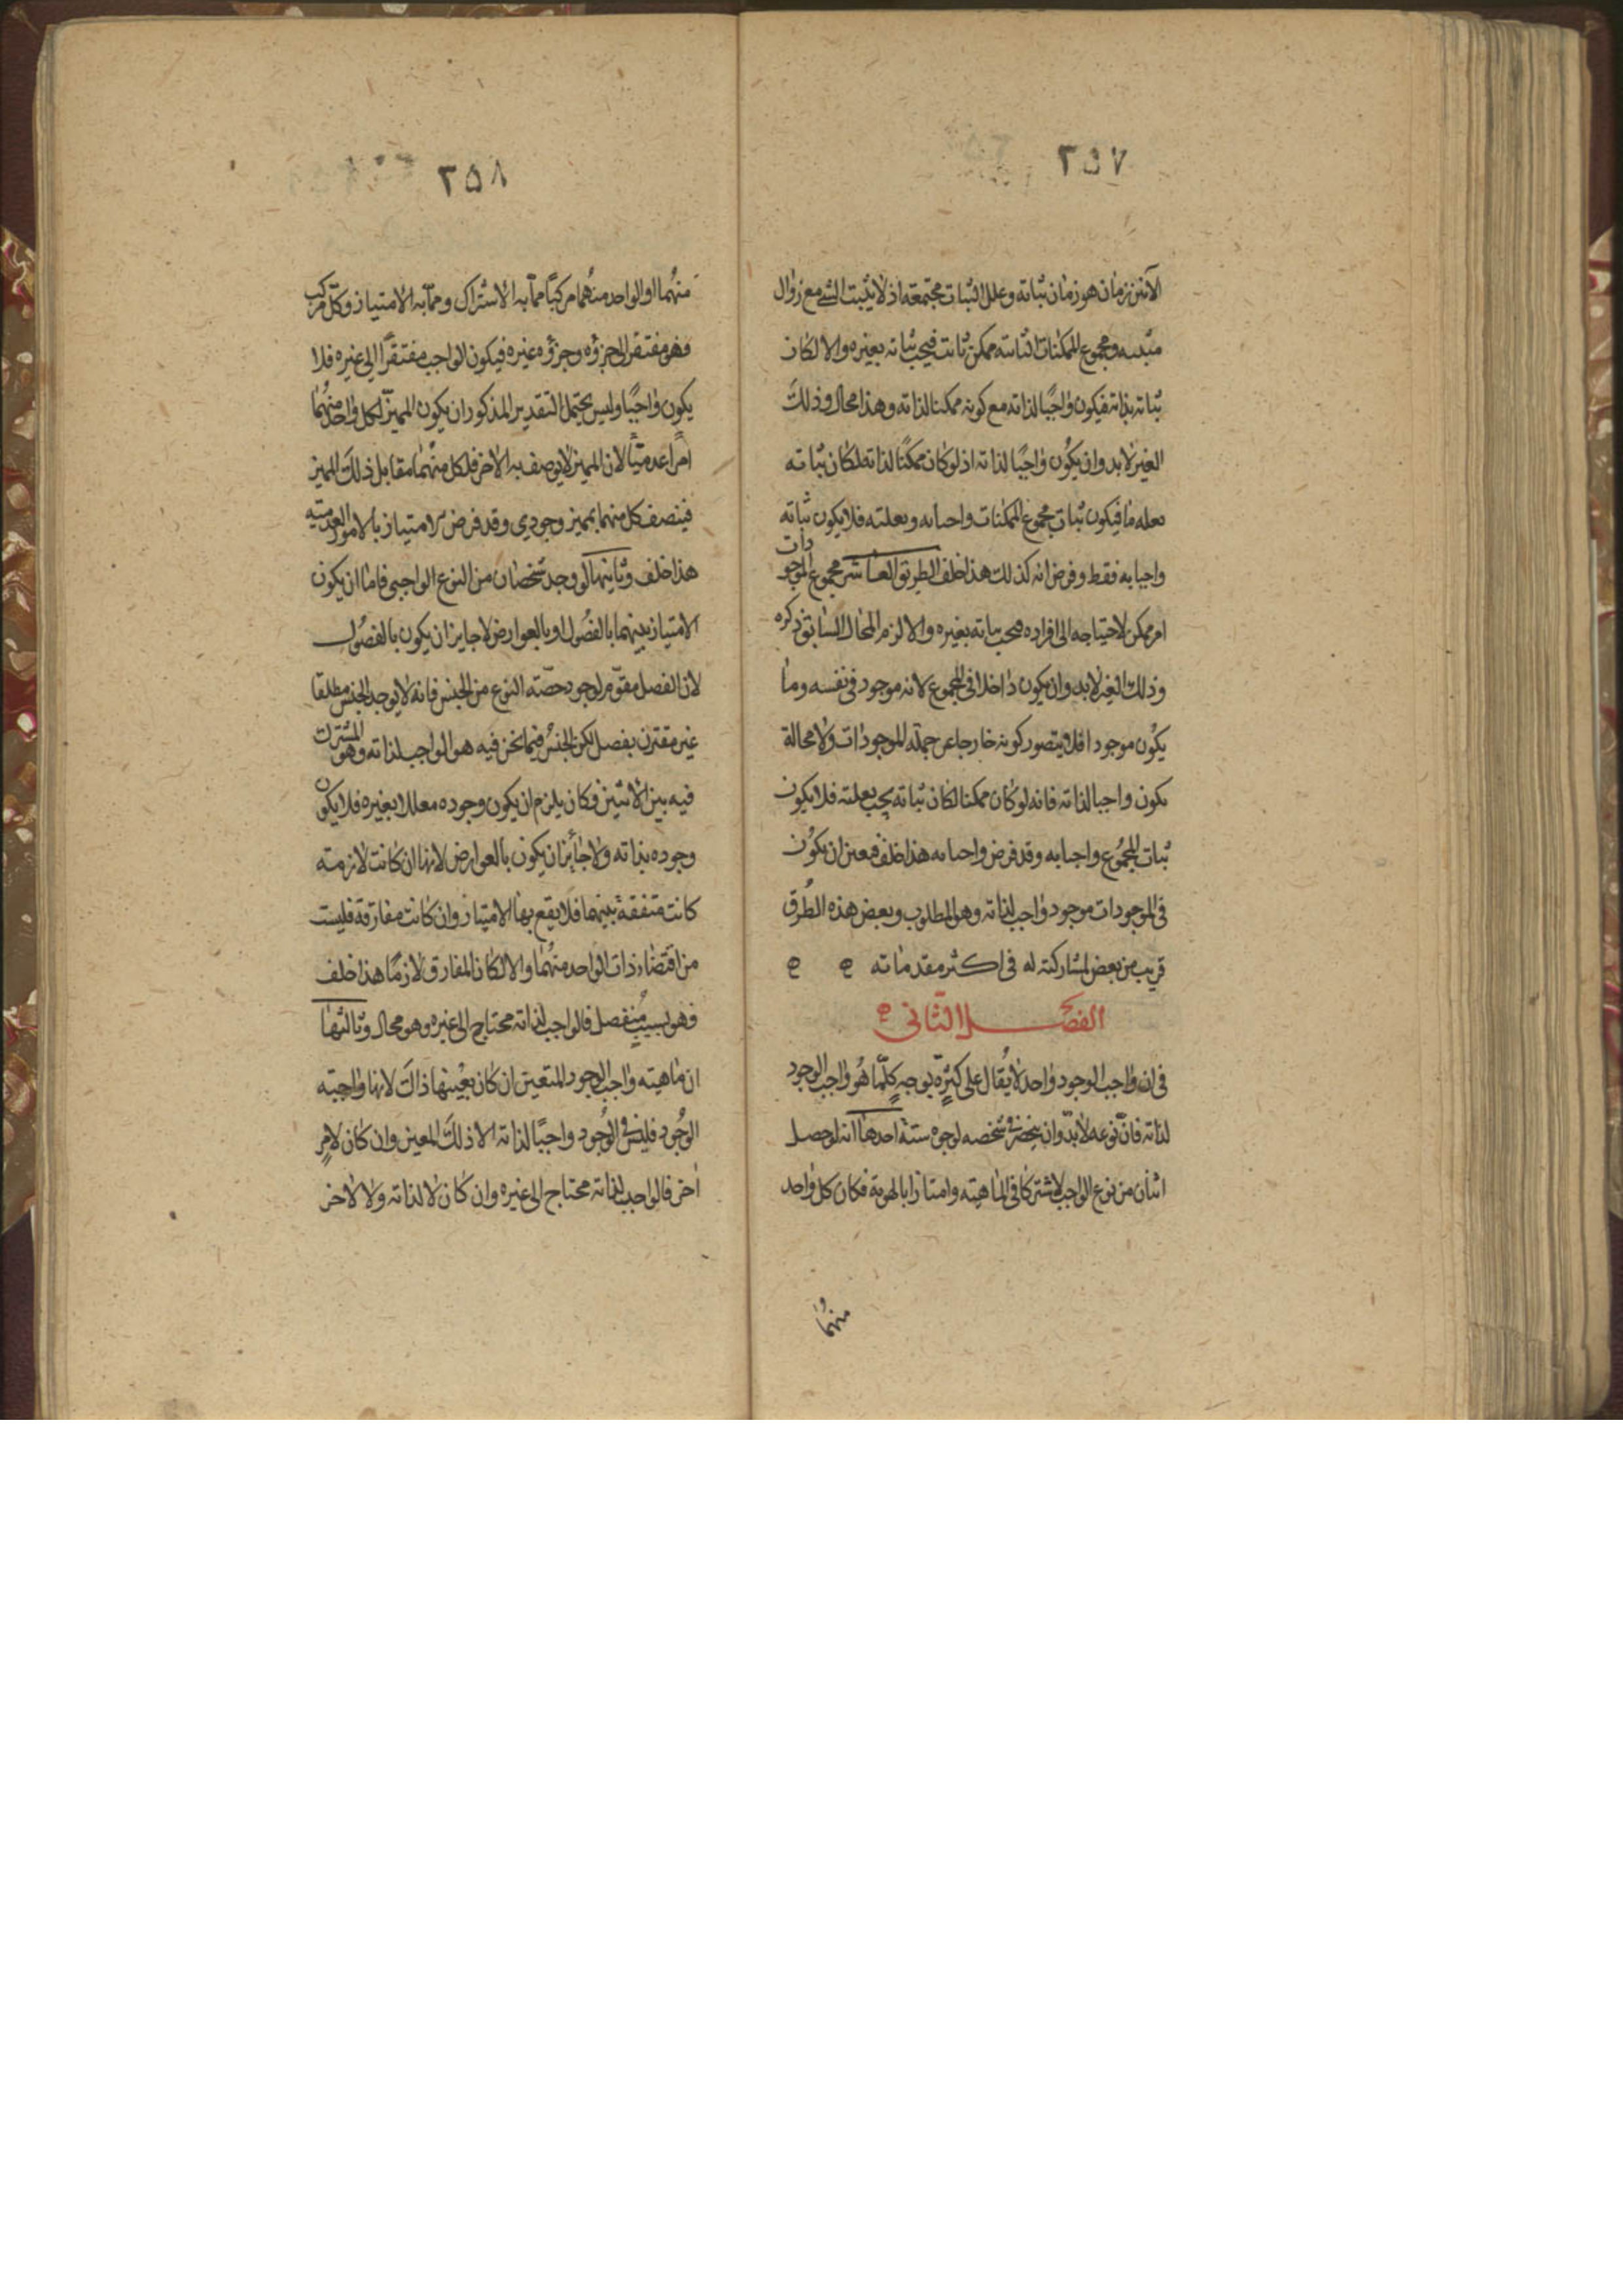 ٢٥٧
الآنين زمان هو زمان ثباته وعلل الثبات مجتمعة اذ لا يثبت الشي مع زوال
مثبته ومجموع الممكنات الثابته ممكن ثابت فيجب ثباته بغيره والا لكان
ثباته بذاته فيكون واجبًا لذاته مع كونه ممكنا لذاته وهذا محال وذلك
الغير لا بد وان يكون واجبًا لذاته اذ لو كان ممكنًا لذاته لكان ثباته
بعله ما فيكون ثبات مجموع الممكنات واجبا به وبعلته فلا يكون ثباته
واجبا به فقط وفرض انه كذلك هذا خلف الطريق العاشر مجموع الموجودات
امر ممكن لاحتياجه الى افراده فيجب ثباته بغيره والا لزم المحال السابق ذكره
وذلك الغير لا بد وان يكون داخلا في المجموع لانه موجود في نفسه وما
يكون موجودا فلا يتصور كونه خارجا عن جملة الموجودات ولا محالة
يكون واجبا لذاته فانه لو كان ممكنا لكان ثباته يجب بعلته فلا يكون
ثبات المجموع واجبا به وقد فرض واجبا به هذا خلف فيعين ان يكون
في الموجودات موجود واجب لذاته وهو المطلوب وبعض هذه الطرق
قريب من بعض لمشاركته له في اكثر مقدماته ه ه
الفصل الثاني ه
في ان واجب الوجود واحد لا يقال على كثرة بوجه كلما هو واجب الوجود
لذاته فان نوعه لا بد وان ينحصر في شخصه لوجوه ستة احدها انه لو حصل
اثنان من نوع الواجب لاشتركا في الماهيته وامتازا بالهوية فكان كل واحد
منهما
٢٥٨
منهما او الواحد منهما مركبًا مما به الاشتراك ومما به الامتياز وكل مركب
فهو مفتقر الى جزؤه وجزؤه غيره فيكون الواجب مفتقرًا الى غيره فلا
يكون واجبًا وليس يحتمل التقدير المذكور ان يكون المميز لكل واحد منهما
امرًا عدميًا لان المميز لا يوصف به الاخر فلكل منهما مقابل ذلك المميز
فيتصف كل منهما بمميز وجودي وقد فرض الامتياز بالامور العدميته
هذا خلف وثانيها لو وجد شخصان من النوع الواجبي فاما ان يكون
الامتياز بينهما بالفصول او بالعوارض لا جايز ان يكون بالفصول
لان الفصل مقوم لوجود حصته النوع من الجنس فانه لا يوجد الجنس مطلقا
غير مقترن بفصل لكن الجنس فيما نحن فيه هو الواجب لذاته وهو المشترك
فيه بين الاثنين فكان يلزم ان يكون وجوده معللا بغيره فلا يكون
وجوده بذاته ولا جائز ان يكون بالعوارض لانها ان كانت لازمته
كانت متفقة بينهما فلا يقع بها الامتياز وان كانت مفارقة فليست
من اقتضاء ذات الواحد منهما والا لكان المفارق لازمًا هذا خلف
فهو بسبب منفصل فالواجب لذاته محتاج الى غيره وهو محال وثالثها
ان ماهيته واجب الوجود المتعين ان كان بعينها ذاك لانها واجبته
الوجود فليس في الوجود واجبًا لذاته الا ذلك المعين وان كان لامر
اخر فالواجب لذاته محتاج الى غيره وان كان لا لذاته ولا لاخر